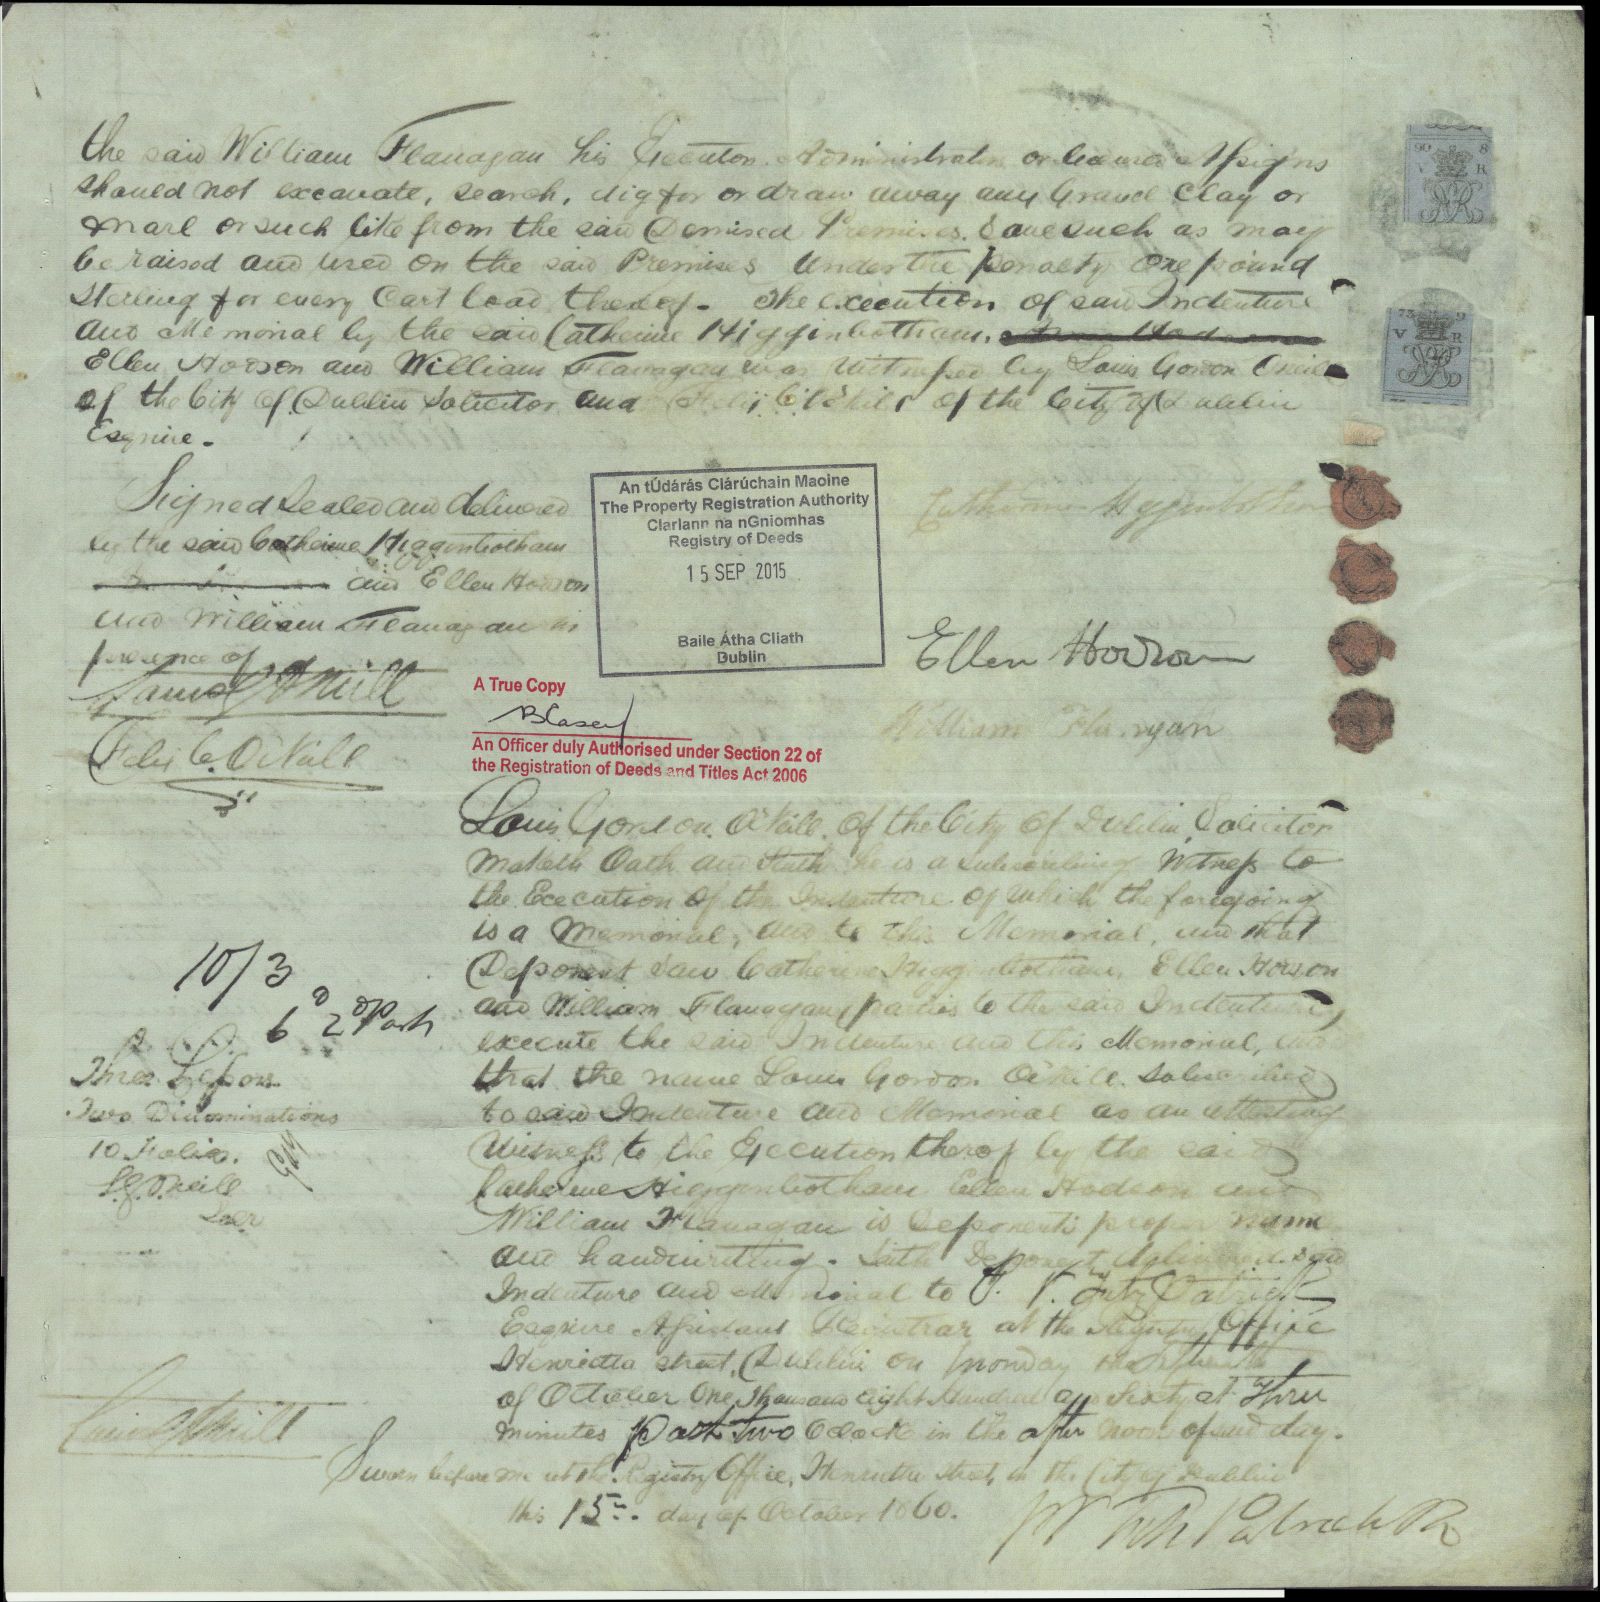 the said William Flanagan his Executors Administrators or Assigns
should not excavate, search, dig for or draw away any Gravel Clay or
Marl or such like from the said Demised Premises. Save such as may
be raised and used on the said Premises Under the penalty One pound
Sterling for every Cart load thereof - The execution of said Indenture
and Memorial by the said Catherine Higginbotham,
Ellen Hodson and William Flanagan was Witnessed by Louis Gordon O'Neill
of the City of Dublin Solicitor and Felix C. O'Neill of the City of Dublin
Esquire -
Signed Sealed and delivered
by the said Catherine Higginbotham
and Ellen Hodson
and William Flanagan in
presence of
Louis G O'Neill
Felix C. O'Neill
An tÚdárás Clárúchain Maoine
The Property Registration Authority
Clarlann na nGniomhas
Registry of Deeds
15 SEP 2015
Baile Átha Cliath
Dublin
A True Copy
An Officer duly Authorised under Section 22 of
the Registration of Deeds and Titles Act 2006
Catherine Higginbotham
Ellen Hodson
William Flanagan
90 8
V R
73 9
V R
Louis Gordon O'Neill of the City of Dublin Solicitor
Maketh Oath and Saith he is a subscribing Witness to
the Execution of the Indenture of Which the foregoing
is a Memorial, and to this Memorial, and that
Deponent saw Catherine Higginbotham, Ellen Hodson
and William Flanagan parties to the said Indenture,
execute the said Indenture and this Memorial, and
that the name Louis Gordon O'Neill Subscribed
to said Indenture and Memorial as an attesting
Witness to the Execution thereof by the said
Catherine Higginbotham Ellen Hodson and
William Flanagan is Deponents proper name
and handwriting - Saith Deponent delivered said
Indenture and Memorial to Fitz Patrick
Esquire Assistant Registrar at the Registry Office
Henrietta Street, Dublin on Monday the fifteenth
of October One Thousand Eight Hundred and Sixty at Three
minutes past Two O'clock in the after noon of said day.
Sworn before me at the Registry Office, Henrietta Street, in the City of Dublin
this 15th day of October 1860.
10/3
6 2
Two Denominations
10 Folios.
L.G. O'Neill
Louis G O'Neill
Fitz Patrick